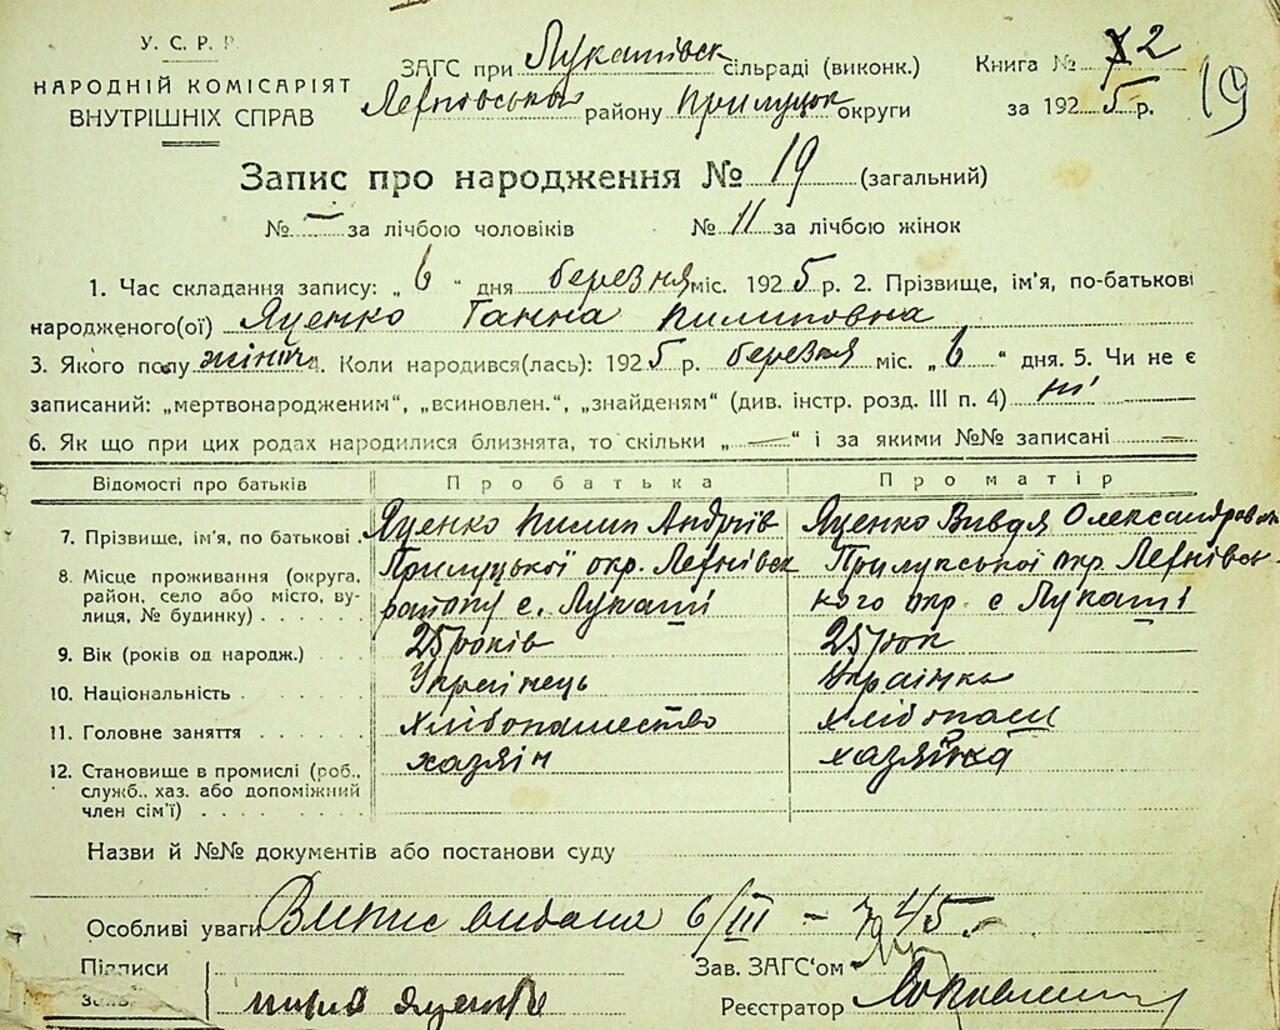 У. С. Р. Р.
НАРОДНІЙ КОМІСАРІЯТ
ВНУТРІШНІХ СПРАВ
ЗАГС при Лукашівск сільраді (виконк.)
району Прилуцок округи
Книга № 2
за 1925 р.
19
Запис про народження № 19 (загальний)
№ – за лічбою чоловіків № 11 за лічбою жінок
1. Час складання запису: „ 6 “ дня березня міс. 1925 р. 2. Прізвище, ім'я, по-батькові
народженого(ої) Яценко Ганна Пилиповна
3. Якого полу жіноч. Коли народився(лась): 1925 р. березня міс. „ 6 “ дня. 5. Чи не є
записаний: „мертвонародженим“, „всиновлен.“, „знайденям“ (див. інстр. розд. III п. 4) ні
6. Як що при цих родах народилися близнята, то скільки „ — “ і за якими №№ записані —
Відомості про батьків Про батька Про матір
7. Прізвище, ім'я, по батькові . Яценко Пилип Андріїв Яценко Вивдя Олександровна
8. Місце проживання (округа, район, село або місто, вулиця, № будинку) . . . . . .
Прилуцької окр.
району с. Лукаші
Прилукської окр.
кого окр. с Лукаші
9. Вік (років од народж.) . . . 25 років 25 рок
10. Національність . . . . . . . Українець Українка
11. Головне заняття . . . . . . хлібопашество хлібопаш
12. Становище в промислі (роб., служб., хаз. або допоміжний член сім'ї) . . . . . . . . хазяїн хазяйка
Назви й №№ документів або постанови суду
Особливі уваги Випис видана 6/III –
Підписи
Зав. ЗАГС'ом
Реєстратор